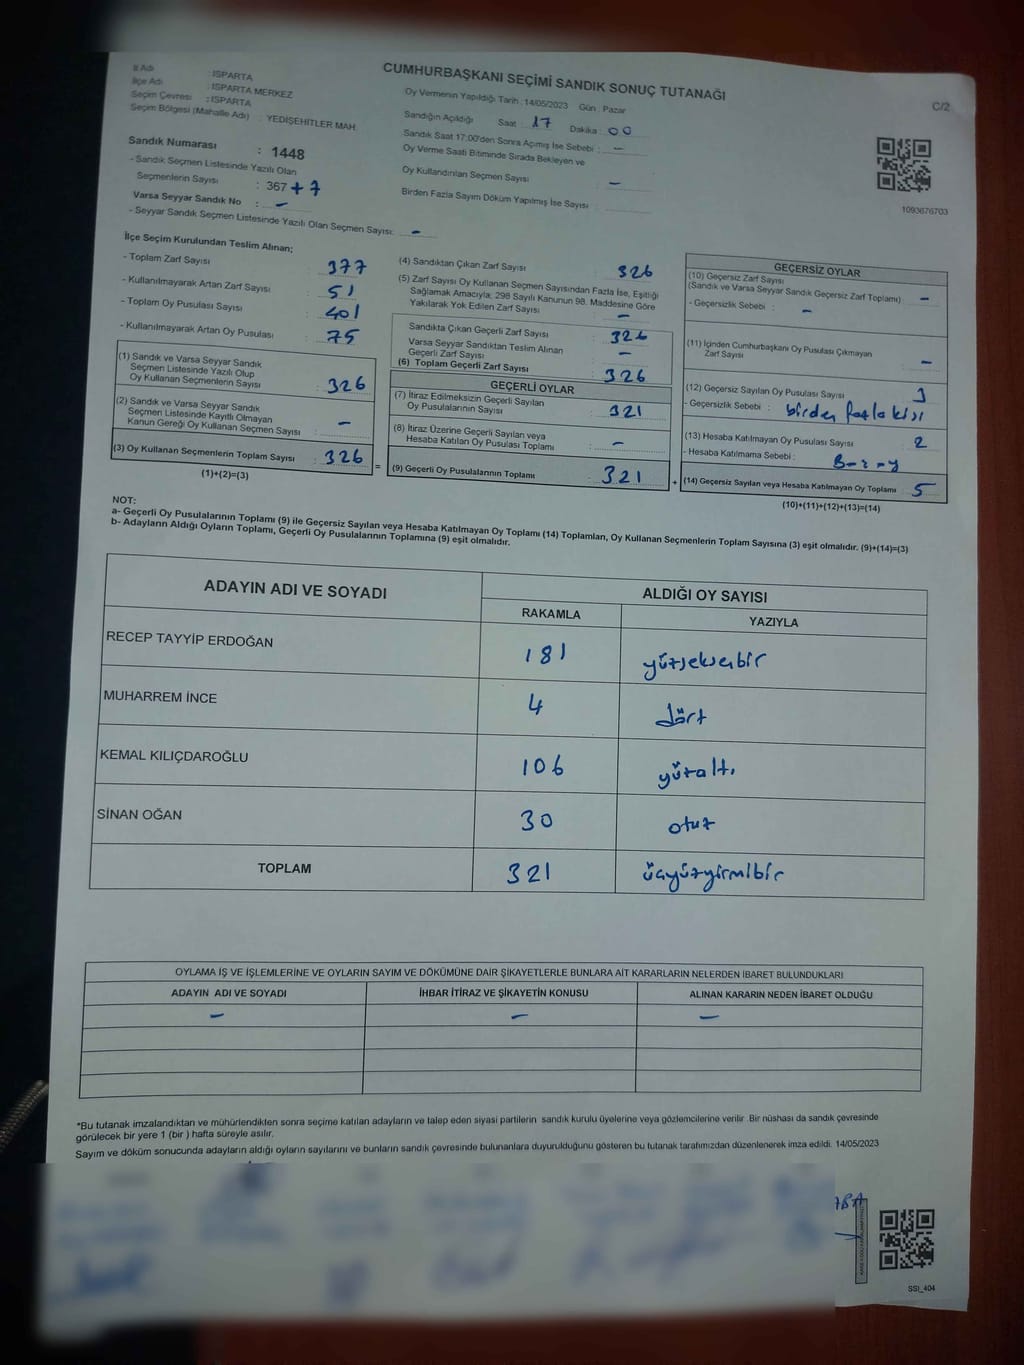 CUMHURBAŞKANI SEÇİMİ SANDIK SONUÇ TUTANAĞI
C/2
İl Adı : ISPARTA
İlçe Adı : ISPARTA MERKEZ
Seçim Çevresi : ISPARTA
Seçim Bölgesi (Mahalle Adı) : YEDİŞEHİTLER MAH.
Sandık Numarası : 1448
- Sandık Seçmen Listesinde Yazılı Olan
Seçmenlerin Sayısı : 367 + 7
Varsa Seyyar Sandık No : -
- Seyyar Sandık Seçmen Listesinde Yazılı Olan Seçmen Sayısı: -
Oy Vermenin Yapıldığı Tarih : 14/05/2023 Gün : Pazar
Sandığın Açıldığı Saat : 17 Dakika : 00
Sandık Saat 17:00'den Sonra Açmış İse Sebebi : -
Oy Verme Saati Bitiminde Sırada Bekleyen ve
Oy Kullandırılan Seçmen Sayısı : -
Birden Fazla Sayım Döküm Yapılmış İse Sayısı :
1093676703
İlçe Seçim Kurulundan Teslim Alınan;
- Toplam Zarf Sayısı : 377
- Kullanılmayarak Artan Zarf Sayısı : 51
- Toplam Oy Pusulası Sayısı : 401
- Kullanılmayarak Artan Oy Pusulası : 75
(1) Sandık ve Varsa Seyyar Sandık
Seçmen Listesinde Yazılı Olup
Oy Kullanan Seçmenlerin Sayısı : 326
(2) Sandık ve Varsa Seyyar Sandık
Seçmen Listesinde Kayıtlı Olmayan
Kanun Gereği Oy Kullanan Seçmen Sayısı : -
(3) Oy Kullanan Seçmenlerin Toplam Sayısı : 326
(1)+(2)=(3)
=
(4) Sandıktan Çıkan Zarf Sayısı : 326
(5) Zarf Sayısı Oy Kullanan Seçmen Sayısından Fazla İse, Eşitliği
Sağlamak Amacıyla, 298 Sayılı Kanunun 98. Maddesine Göre
Yakılarak Yok Edilen Zarf Sayısı : -
Sandıkta Çıkan Geçerli Zarf Sayısı : 326
Varsa Seyyar Sandıktan Teslim Alınan
Geçerli Zarf Sayısı : -
(6) Toplam Geçerli Zarf Sayısı : 326
GEÇERLİ OYLAR
(7) İtiraz Edilmeksizin Geçerli Sayılan
Oy Pusulalarının Sayısı : 321
(8) İtiraz Üzerine Geçerli Sayılan veya
Hesaba Katılan Oy Pusulası Toplamı : -
(9) Geçerli Oy Pusulalarının Toplamı : 321
+
GEÇERSİZ OYLAR
(10) Geçersiz Zarf Sayısı
(Sandık ve Varsa Seyyar Sandık Geçersiz Zarf Toplamı) : -
- Geçersizlik Sebebi : -
(11) İçinden Cumhurbaşkanı Oy Pusulası Çıkmayan
Zarf Sayısı : -
(12) Geçersiz Sayılan Oy Pusulası Sayısı : 3
- Geçersizlik Sebebi : birden fazla kişi
(13) Hesaba Katılmayan Oy Pusulası Sayısı : 2
- Hesaba Katılmama Sebebi :
(14) Geçersiz Sayılan veya Hesaba Katılmayan Oy Toplamı : 5
(10)+(11)+(12)+(13)=(14)
NOT:
a- Geçerli Oy Pusulalarının Toplamı (9) ile Geçersiz Sayılan veya Hesaba Katılmayan Oy Toplamı (14) Toplamları, Oy Kullanan Seçmenlerin Toplam Sayısına (3) eşit olmalıdır. (9)+(14)=(3)
b- Adayların Aldığı Oyların Toplamı, Geçerli Oy Pusulalarının Toplamına (9) eşit olmalıdır.
ADAYIN ADI VE SOYADI
ALDIĞI OY SAYISI
RAKAMLA YAZIYLA
RECEP TAYYİP ERDOĞAN 181 yüzseksenbir
MUHARREM İNCE 4 dört
KEMAL KILIÇDAROĞLU 106 yüzaltı
SİNAN OĞAN 30 otuz
TOPLAM 321 üçyüzyirmibir
OYLAMA İŞ VE İŞLEMLERİNE VE OYLARIN SAYIM VE DÖKÜMÜNE DAİR ŞİKAYETLERLE BUNLARA AİT KARARLARIN NELERDEN İBARET BULUNDUKLARI
ADAYIN ADI VE SOYADI İHBAR İTİRAZ VE ŞİKAYETİN KONUSU ALINAN KARARIN NEDEN İBARET OLDUĞU
- - -
*Bu tutanak imzalandıktan ve mühürlendikten sonra seçime katılan adayların ve talep eden siyasi partilerin sandık kurulu üyelerine veya gözlemcilerine verilir. Bir nüshası da sandık çevresinde
görülecek bir yere 1 (bir ) hafta süreyle asılır.
Sayım ve döküm sonucunda adayların aldığı oyların sayılarını ve bunların sandık çevresinde bulunanlara duyurulduğunu gösteren bu tutanak tarafımızdan düzenlenerek imza edildi. 14/05/2023
SSI_404